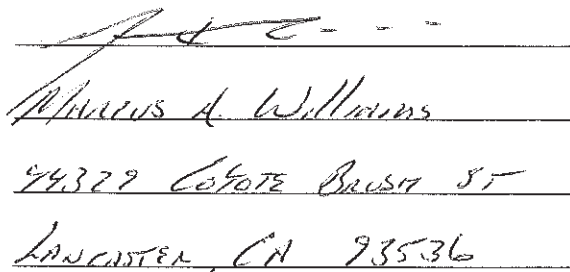 Marcus A. Williams
44329 Coyote Brush St
Lancaster, CA 93536